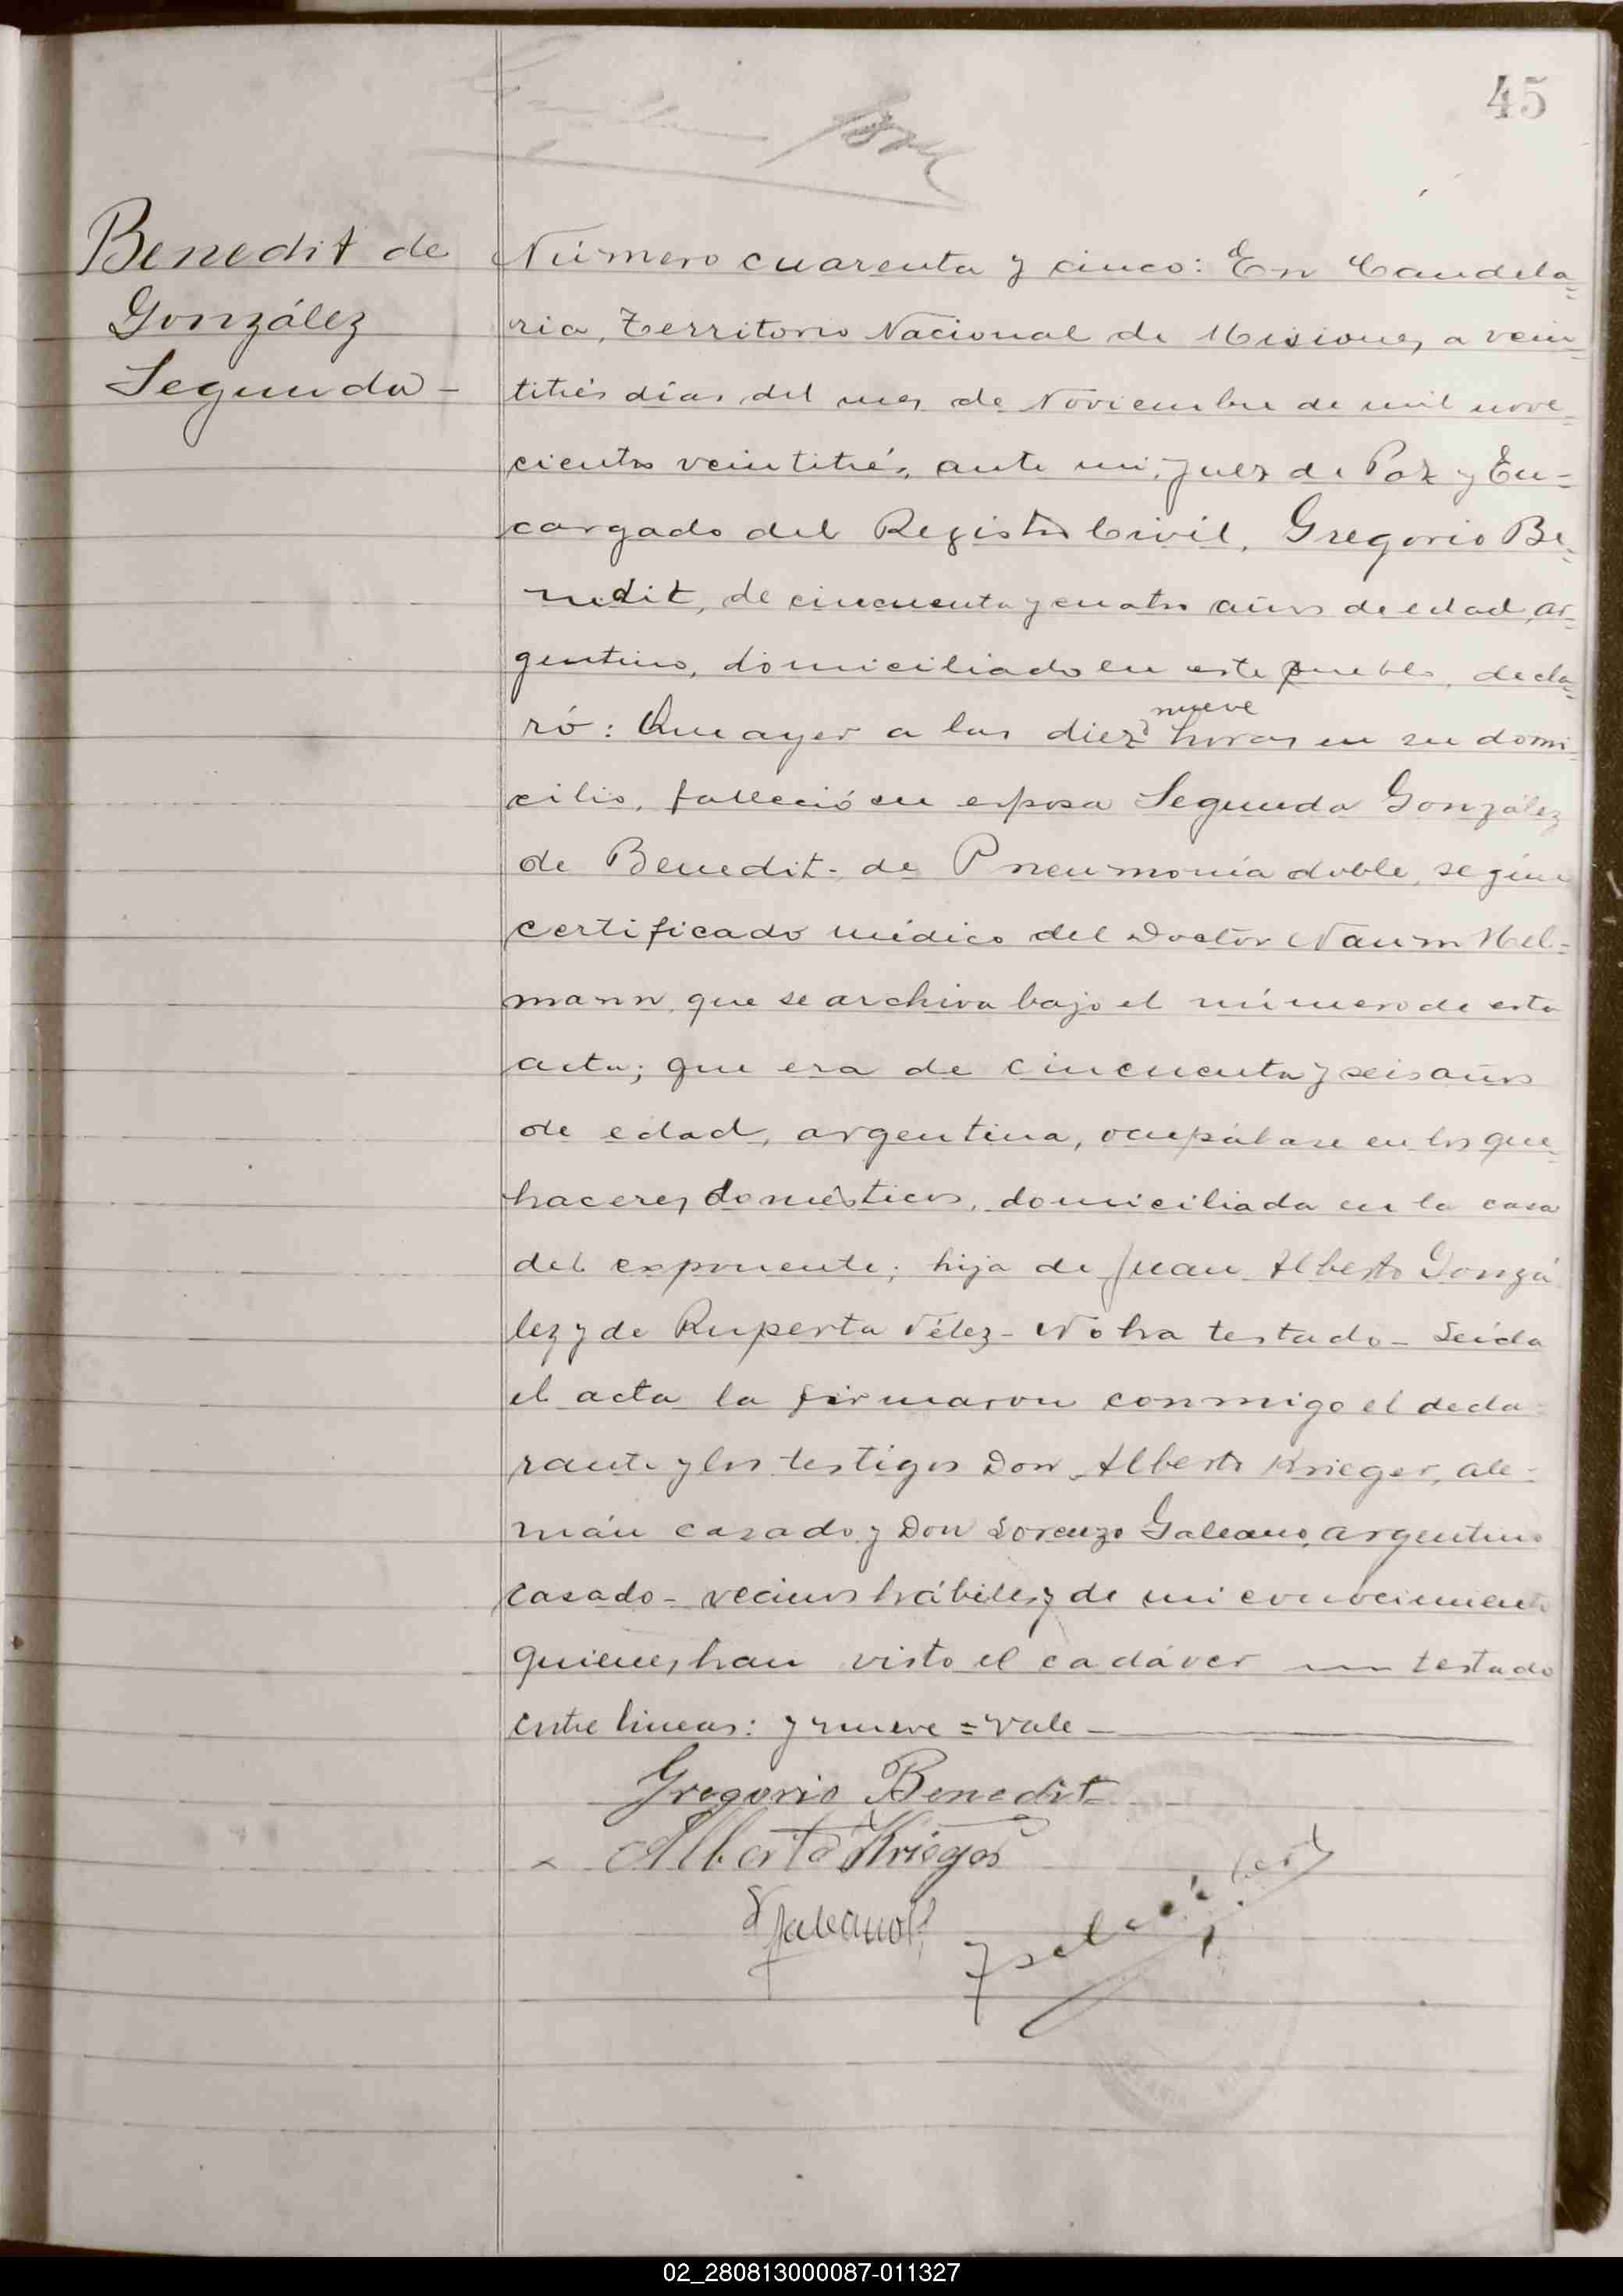 45
Benedit de
González
Segunda -
Número cuarenta y cinco: En Candela=
ria, Territorio Nacional de Misiones, a vein=
titrés días del mes de Noviembre de mil nove=
cientos veintitrés, ante mi, Juez de Paz y En=
cargado del Registro Civil, Gregorio Be=
nedit, de cincuenta y cuatro años de edad, ar=
gentino, domiciliado en este pueblo, decla=
nueve
ró: Que ayer a las diez y horas en su domi=
cilio, falleció su esposa Segunda González
de Benedit - de Pneumonía doble, según
certificado médico del Doctor Naum Hel=
mann, que se archiva bajo el número de esta
acta; que era de cincuenta y seis años
de edad, argentina, ocupábase en los que=
haceres domésticos, domiciliada en la casa
del exponente; hija de Juan Alberto Gonzá
lez y de Ruperta Vélez - No ha testado - Leída
el acta la firmaron conmigo el decla=
rante y los testigos Don Alberto Krieger, ale=
mán casado y Don Lorenzo Galeano, argentino
casado - vecinos hábiles y de mi conocimiento
quienes han visto el cadáver testado
entre lineas: y nueve = vale -
Gregorio Benedit
Alberto Krieger
L Galeano
02_280813000087-011327